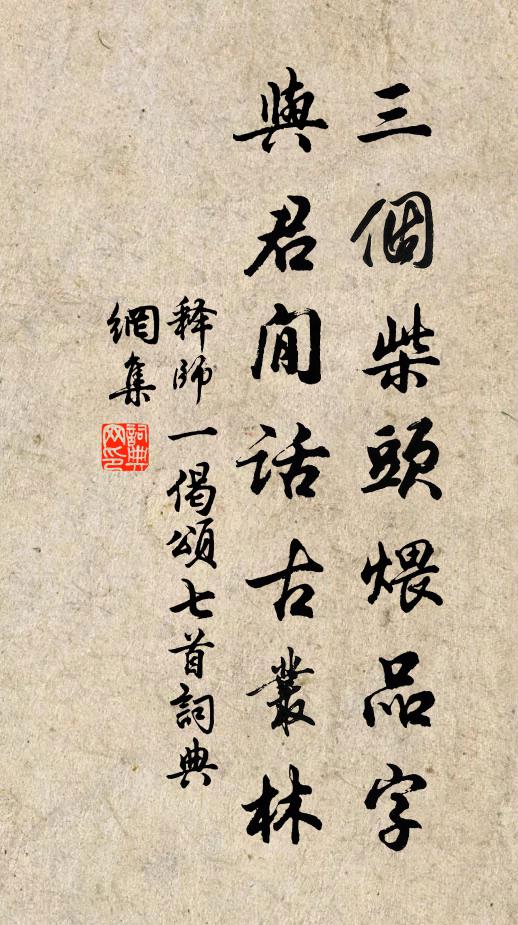 三個柴頭煨品字
與君閒話古叢林
释師一偈頌七首詞典
網集
詞典
网印